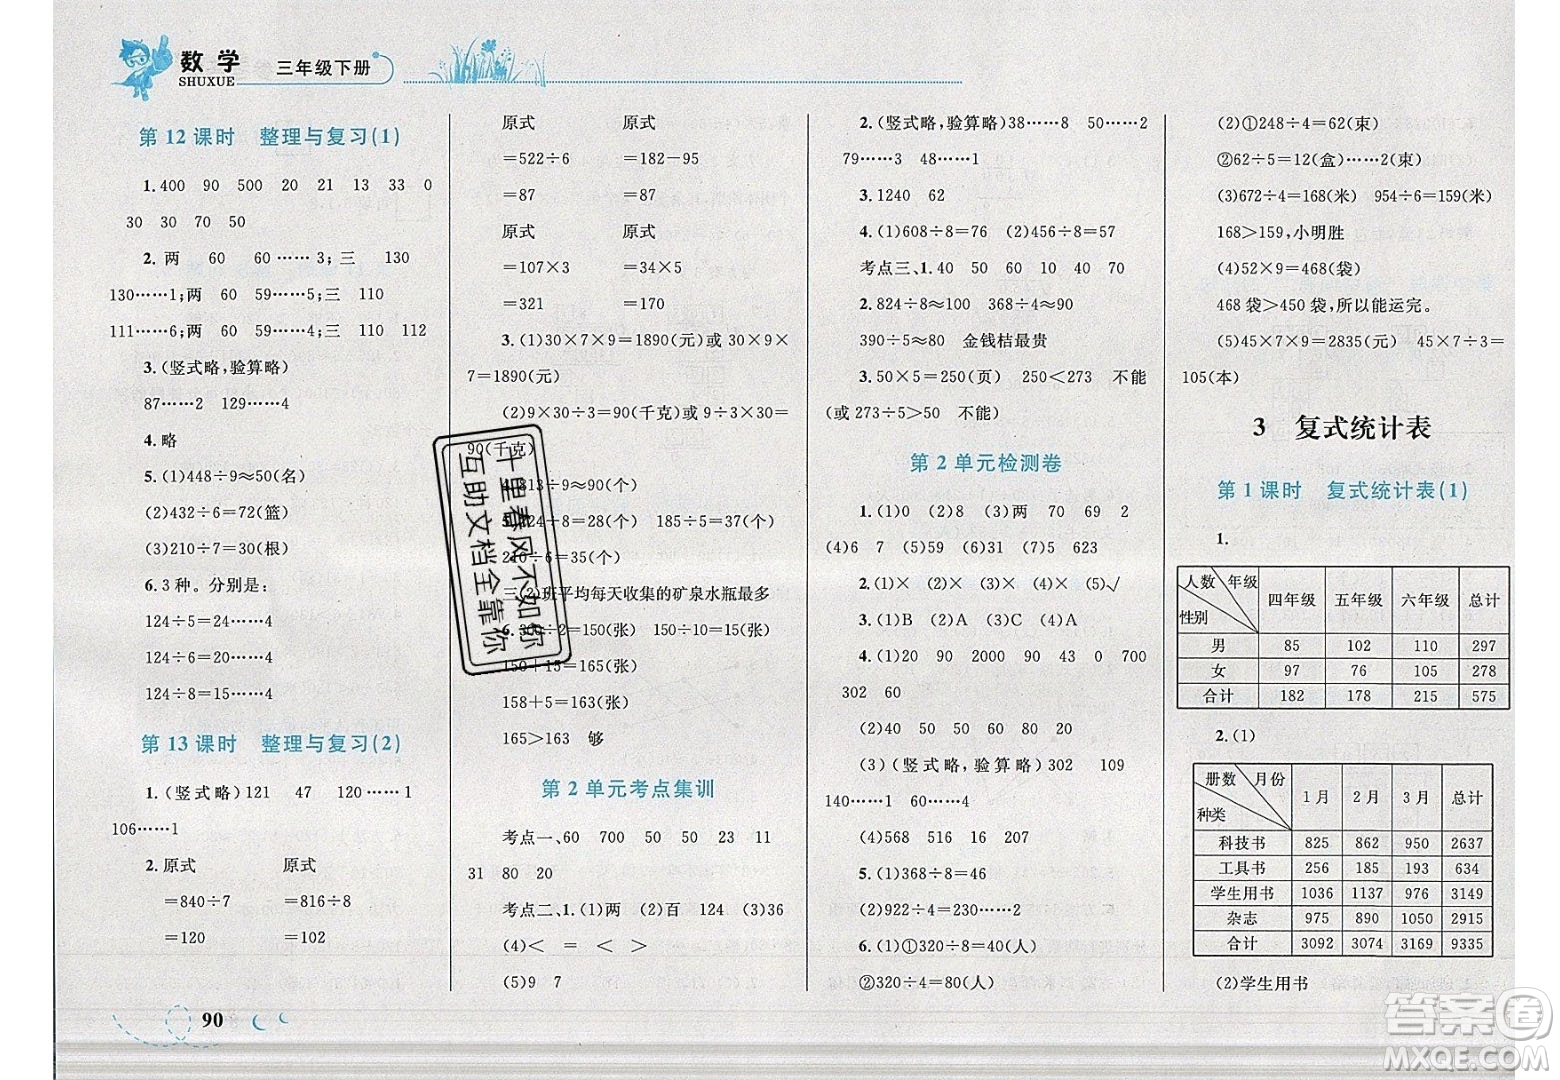 数学
SHUXUE
三年级下册
第12课时　整理与复习(1)
1.400　90　500　20　21　13　33　0
30　30　70　50
2. 两　60　60……3;三　130
130……1;两　60　59……5;三　110
111……6;两　60　59……4;三　110　112
3.(竖式略,验算略)
87……2　129……4
4.略
5.(1)448÷9≈50(名)
(2)432÷6=72(篮)
(3)210÷7=30(根)
6.3种。分别是:
124÷5=24……4
124÷6=20……4
124÷8=15……4
第13课时　整理与复习(2)
1.(竖式略)121　47　120……1
106……1
2.原式　原式
=840÷7　=816÷8
=120　=102
原式　原式
=522÷6　=182-95
=87　=87
原式　原式
=107×3　=34×5
=321　=170
3.(1)30×7×9=1890(元)或30×9×
7=1890(元)
(2)9×30÷3=90(千克)或9÷3×30=
90(千克)
813÷9≈90(个)
24÷8=28(个)　185÷5=37(个)
210÷6=35(个)
三(2)班平均每天收集的矿泉水瓶最多
6.300÷2=150(张)　150÷10=15(张)
150+15=165(张)
158+5=163(张)
165>163　够
第2单元考点集训
考点一、60　700　50　50　23　11
31　80　20
考点二、1.(1)两　(2)百　124　(3)36
(4)<　=　<　>
(5)9　7
2.(竖式略,验算略)38……8　50……2
79……3　48……1
3.1240　62
4.(1)608÷8=76　(2)456÷8=57
考点三、1.40　50　60　10　60　70
2.824÷8≈100　368÷4≈90
390÷5≈80　金钱桔最贵
3.50×5=250(页)　250<273　不能
(或273÷5>50　不能)
第2单元检测卷
1.(1)0　(2)8　(3)两　70　69　2
(4)6　7　(5)59　(6)31　(7)5　623
2.(1)×　(2)×　(3)×　(4)×　(5)√
3.(1)B　(2)A　(3)C　(4)A
4.(1)20　90　2000　90　43　0　700
302　60
(2)40　50　50　60　80　20
(3)(竖式略,验算略)302　109
140……1　60……4
(4)568　516　16　207
5.(1)368÷8=46
(2)922÷4=230……2
6.(1)①320÷8=40(人)
②320÷4=80(人)
(2)①248÷4=62(束)
②62÷5=12(盒)……2(束)
(3)672÷4=168(米)　954÷6=159(米)
168>159,小明胜
(4)52×9=468(袋)
468袋>450袋,所以能运完。
(5)45×7×9=2835(元)　45×7÷3=
105(本)
3　复式统计表
第1课时　复式统计表(1)
1.
人数　年级　性别　四年级　五年级　六年级　总计
男　85　102　110　297
女　97　76　105　278
合计　182　178　215　575
2.(1)
册数　月份　种类　1月　2月　3月　总计
科技书　825　862　950　2637
工具书　256　185　193　634
学生用书　1036　1137　976　3149
杂志　975　890　1050　2915
合计　3092　3074　3169　9335
(2)学生用书
90
十里春风不如你
互助文档全靠你
答案圈
MXQE.COM